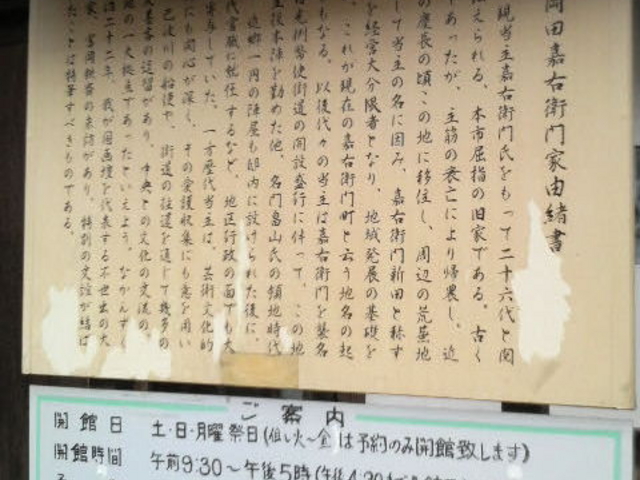 岡田嘉右衛門家由緒書
現当主嘉右衛門氏をもって二十六代と
伝えられる。本市屈指の旧家である。古く
であったが、主筋の衰亡により帰農し、近
の慶長の頃、この地に移住し、周辺の荒蕪地
して当主の名に因み、嘉右衛門新田と称す
を経営大分限者となり、地域発展の基礎を
これが現在の嘉右衛門町と云う地名の起
ともなる。以後代々の当主は嘉右衛門を襲名
日光例幣使街道の開設盛行に伴って、この地
本陣を勤めた他、名門畠山氏の領地時代
近郷一円の陣屋も邸内に設けられた後に、
代官職に就任するなど、地区行政の面でも大
寄与していた。一方歴代当主は、芸術文化的
にも関心が深く、その愛護収集にも意を用い
巴波川の船便や、街道の往還を通じて幾多の
文人墨客の逗留があり、中央との文化の交流の
地の一大拠点であったといえよう。なかんずく
治二十二年、我が国画壇を代表する不世出の大
家、富岡鉄斎の来訪があり、特別の交誼が結ば
たことは特筆すべきものである。
ご案内
開館日 土・日・月曜祭日(但し火〜金は予約のみ開館致します)
開館時間 午前9:30〜午後5時(午後4:30まで